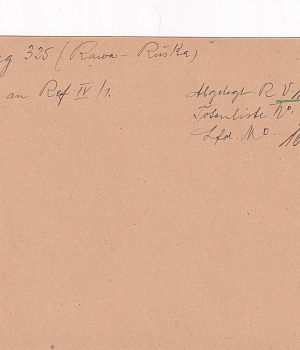 325 (Rawa-Ruska)
an Ref IV/1.
Abgelegt R V
Totenliste No.
Lfd. No.